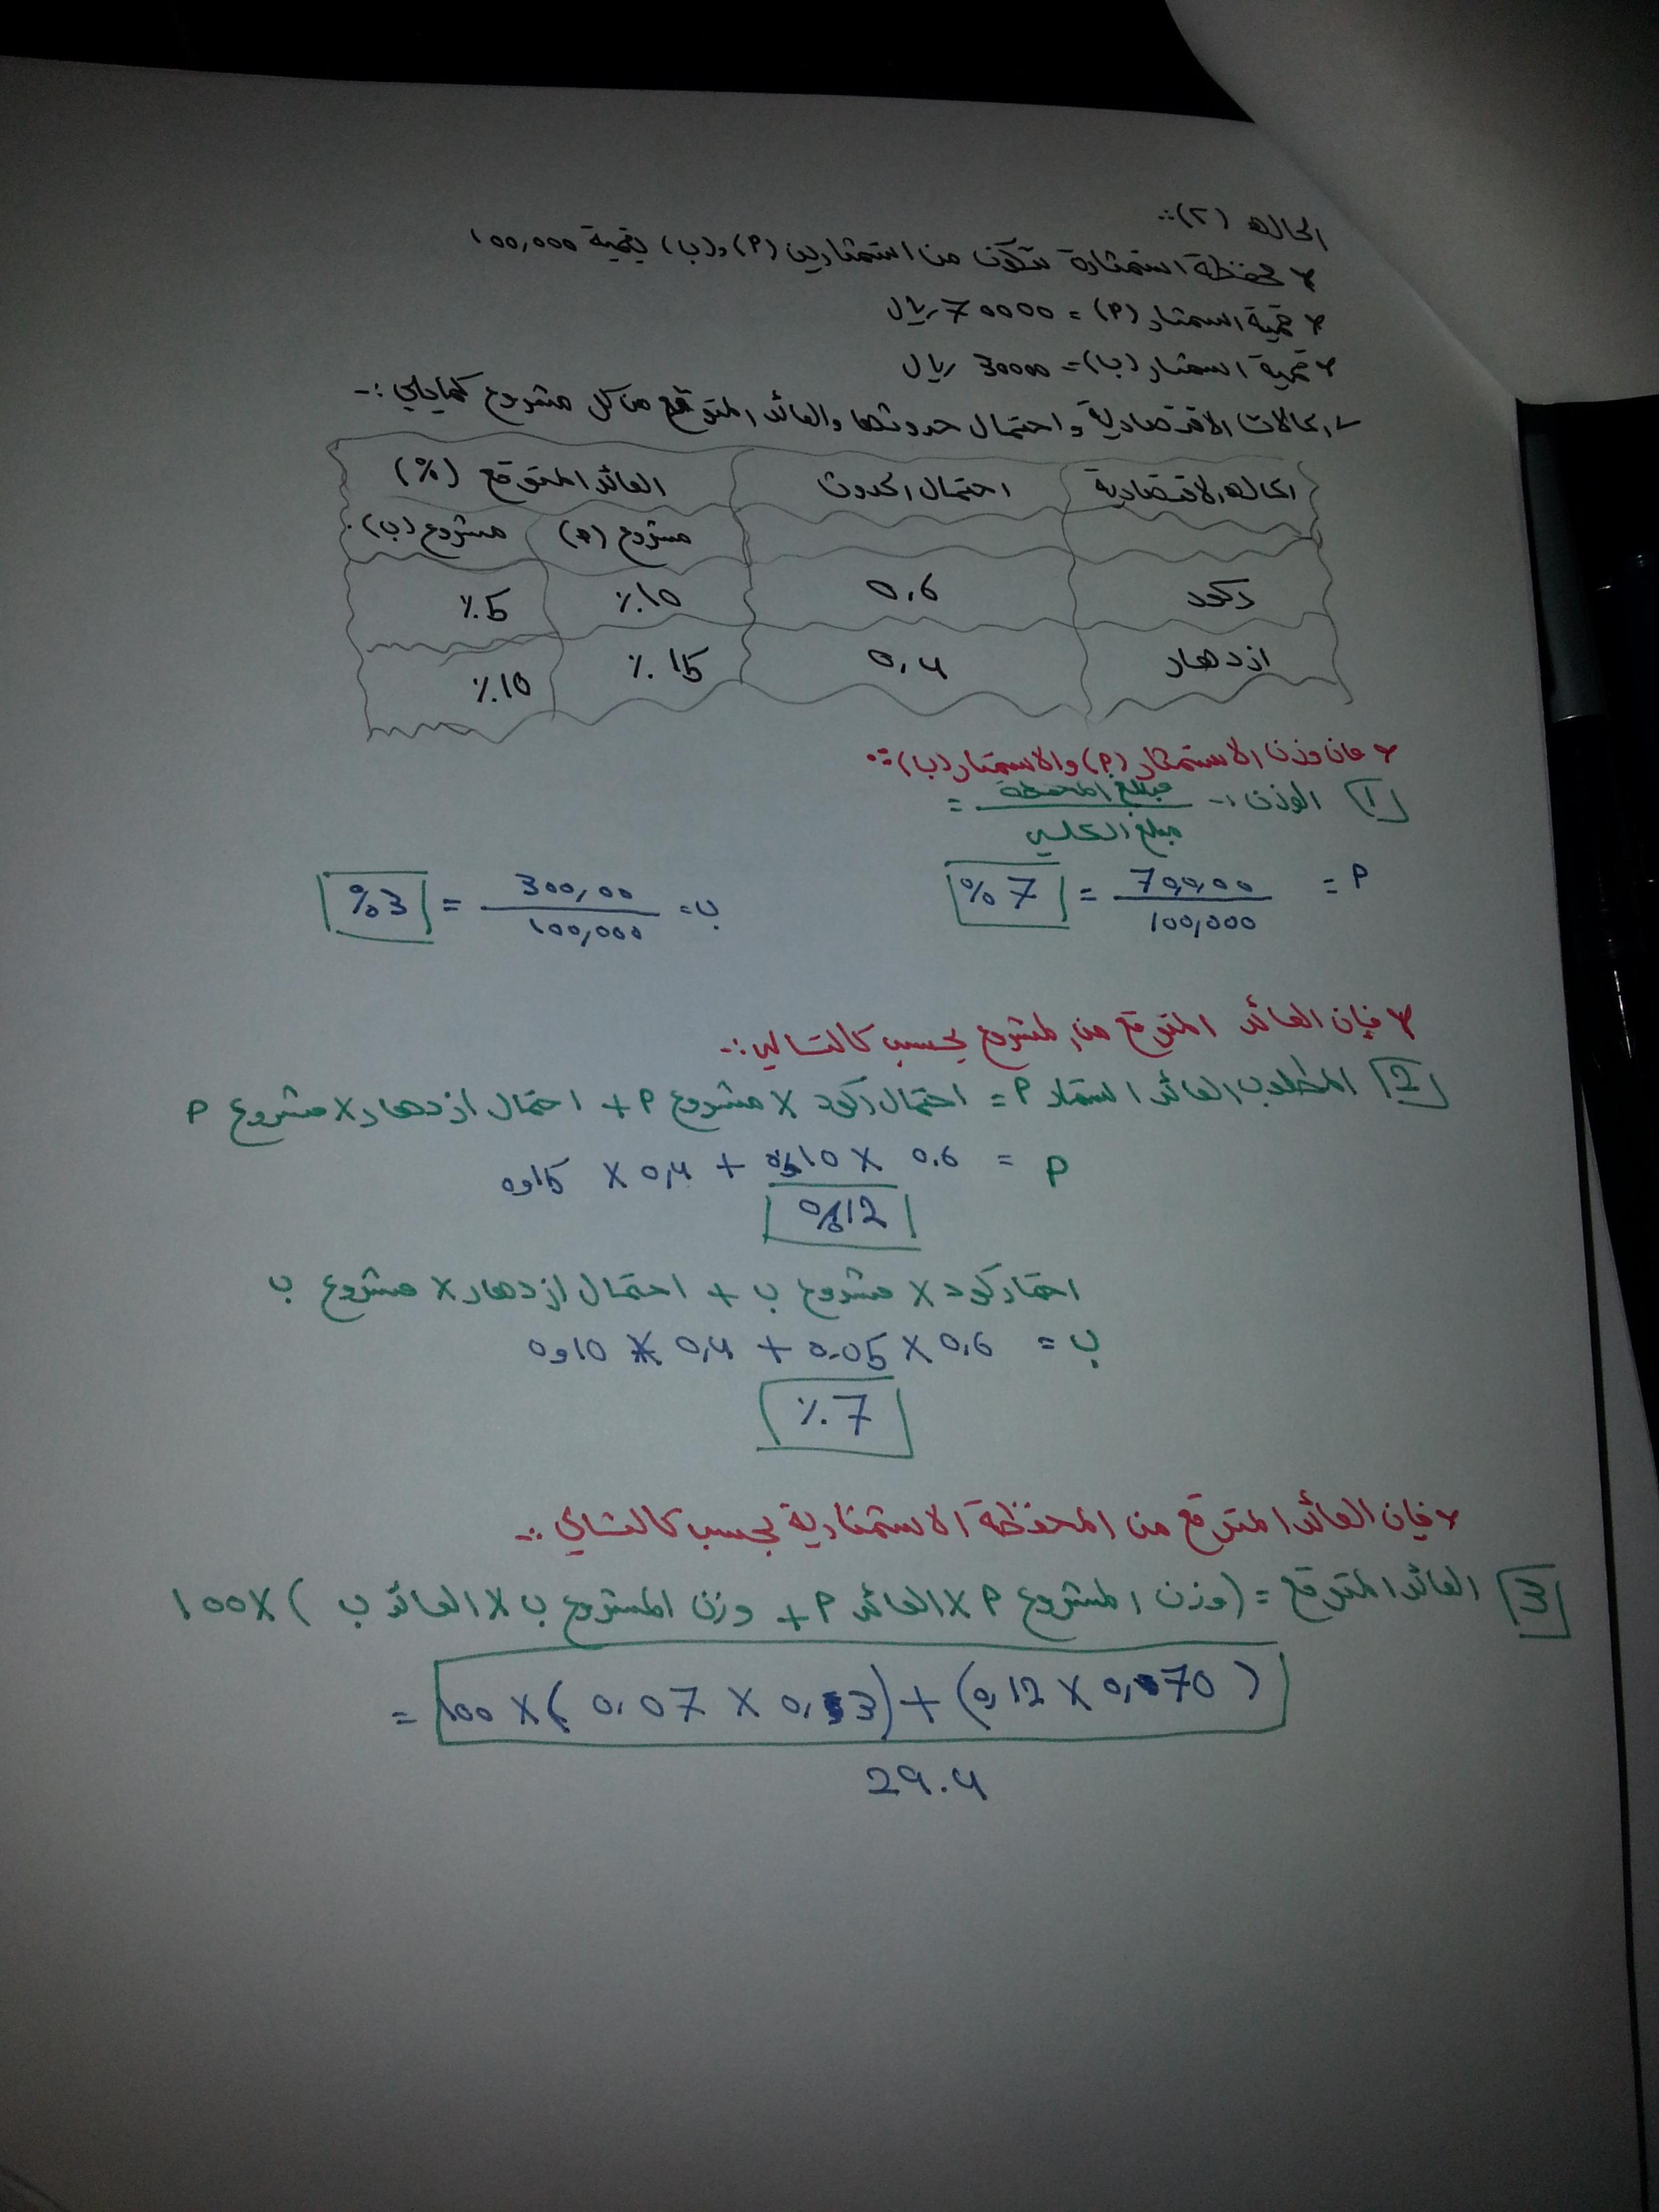 الحاله (٢):-
* محفظة استثمارة تتكون من استثمارين (أ) و(ب) بقيمة 100,000
* قيمة استثمار (أ) = 70000 ريال
* قيمة استثمار (ب) = 30000 ريال
الحالات الاقتصادية واحتمال حدوثها والعائد المتوقع من كل مشروع كمايلي :-
الحاله الاقتصادية احتمال الحدوث العائد المتوقع (%)
مشروع (أ) مشروع (ب)
ركود 0,6 %10 %5
ازدهار 0,4 %15 %10
* فان وزن الاستثمار (أ) والاستثمار (ب) :-
[1] الوزن :- مبلغ المحفظة / مبلغ الكلي =
أ = 70,000 / 100,000 = %7
ب = 300,00 / 100,000 = %3
* فإن العائد المتوقع من المشروع يحسب كالتالي :-
[2] المطلوب العائد استثمار أ = احتمال ركود × مشروع أ + احتمال ازدهار × مشروع أ
أ = 0.6 × 10% + 0,4 × 0و15
%12
احتمار كود × مشروع ب + احتمال ازدهار × مشروع ب
ب = 0,6 × 0.05 + 0,4 × 0و10
%7
* فإن العائد المتوقع من المحفظة الاستثمارية يحسب كالتالي :-
[3] العائد المتوقع = (وزن المشروع أ × العائد أ + وزن المشروع ب × العائد ب ) × 100
= 100 × ( 0.07 × 0,3) + (0,12 × 0,70 )
29.4